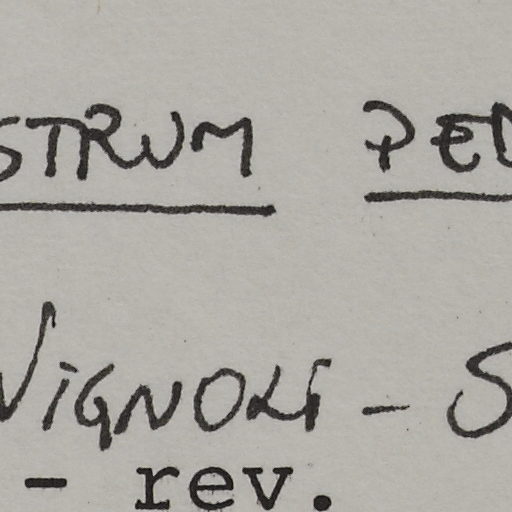 STRUM PED
VIGNOLI - S
- rev.